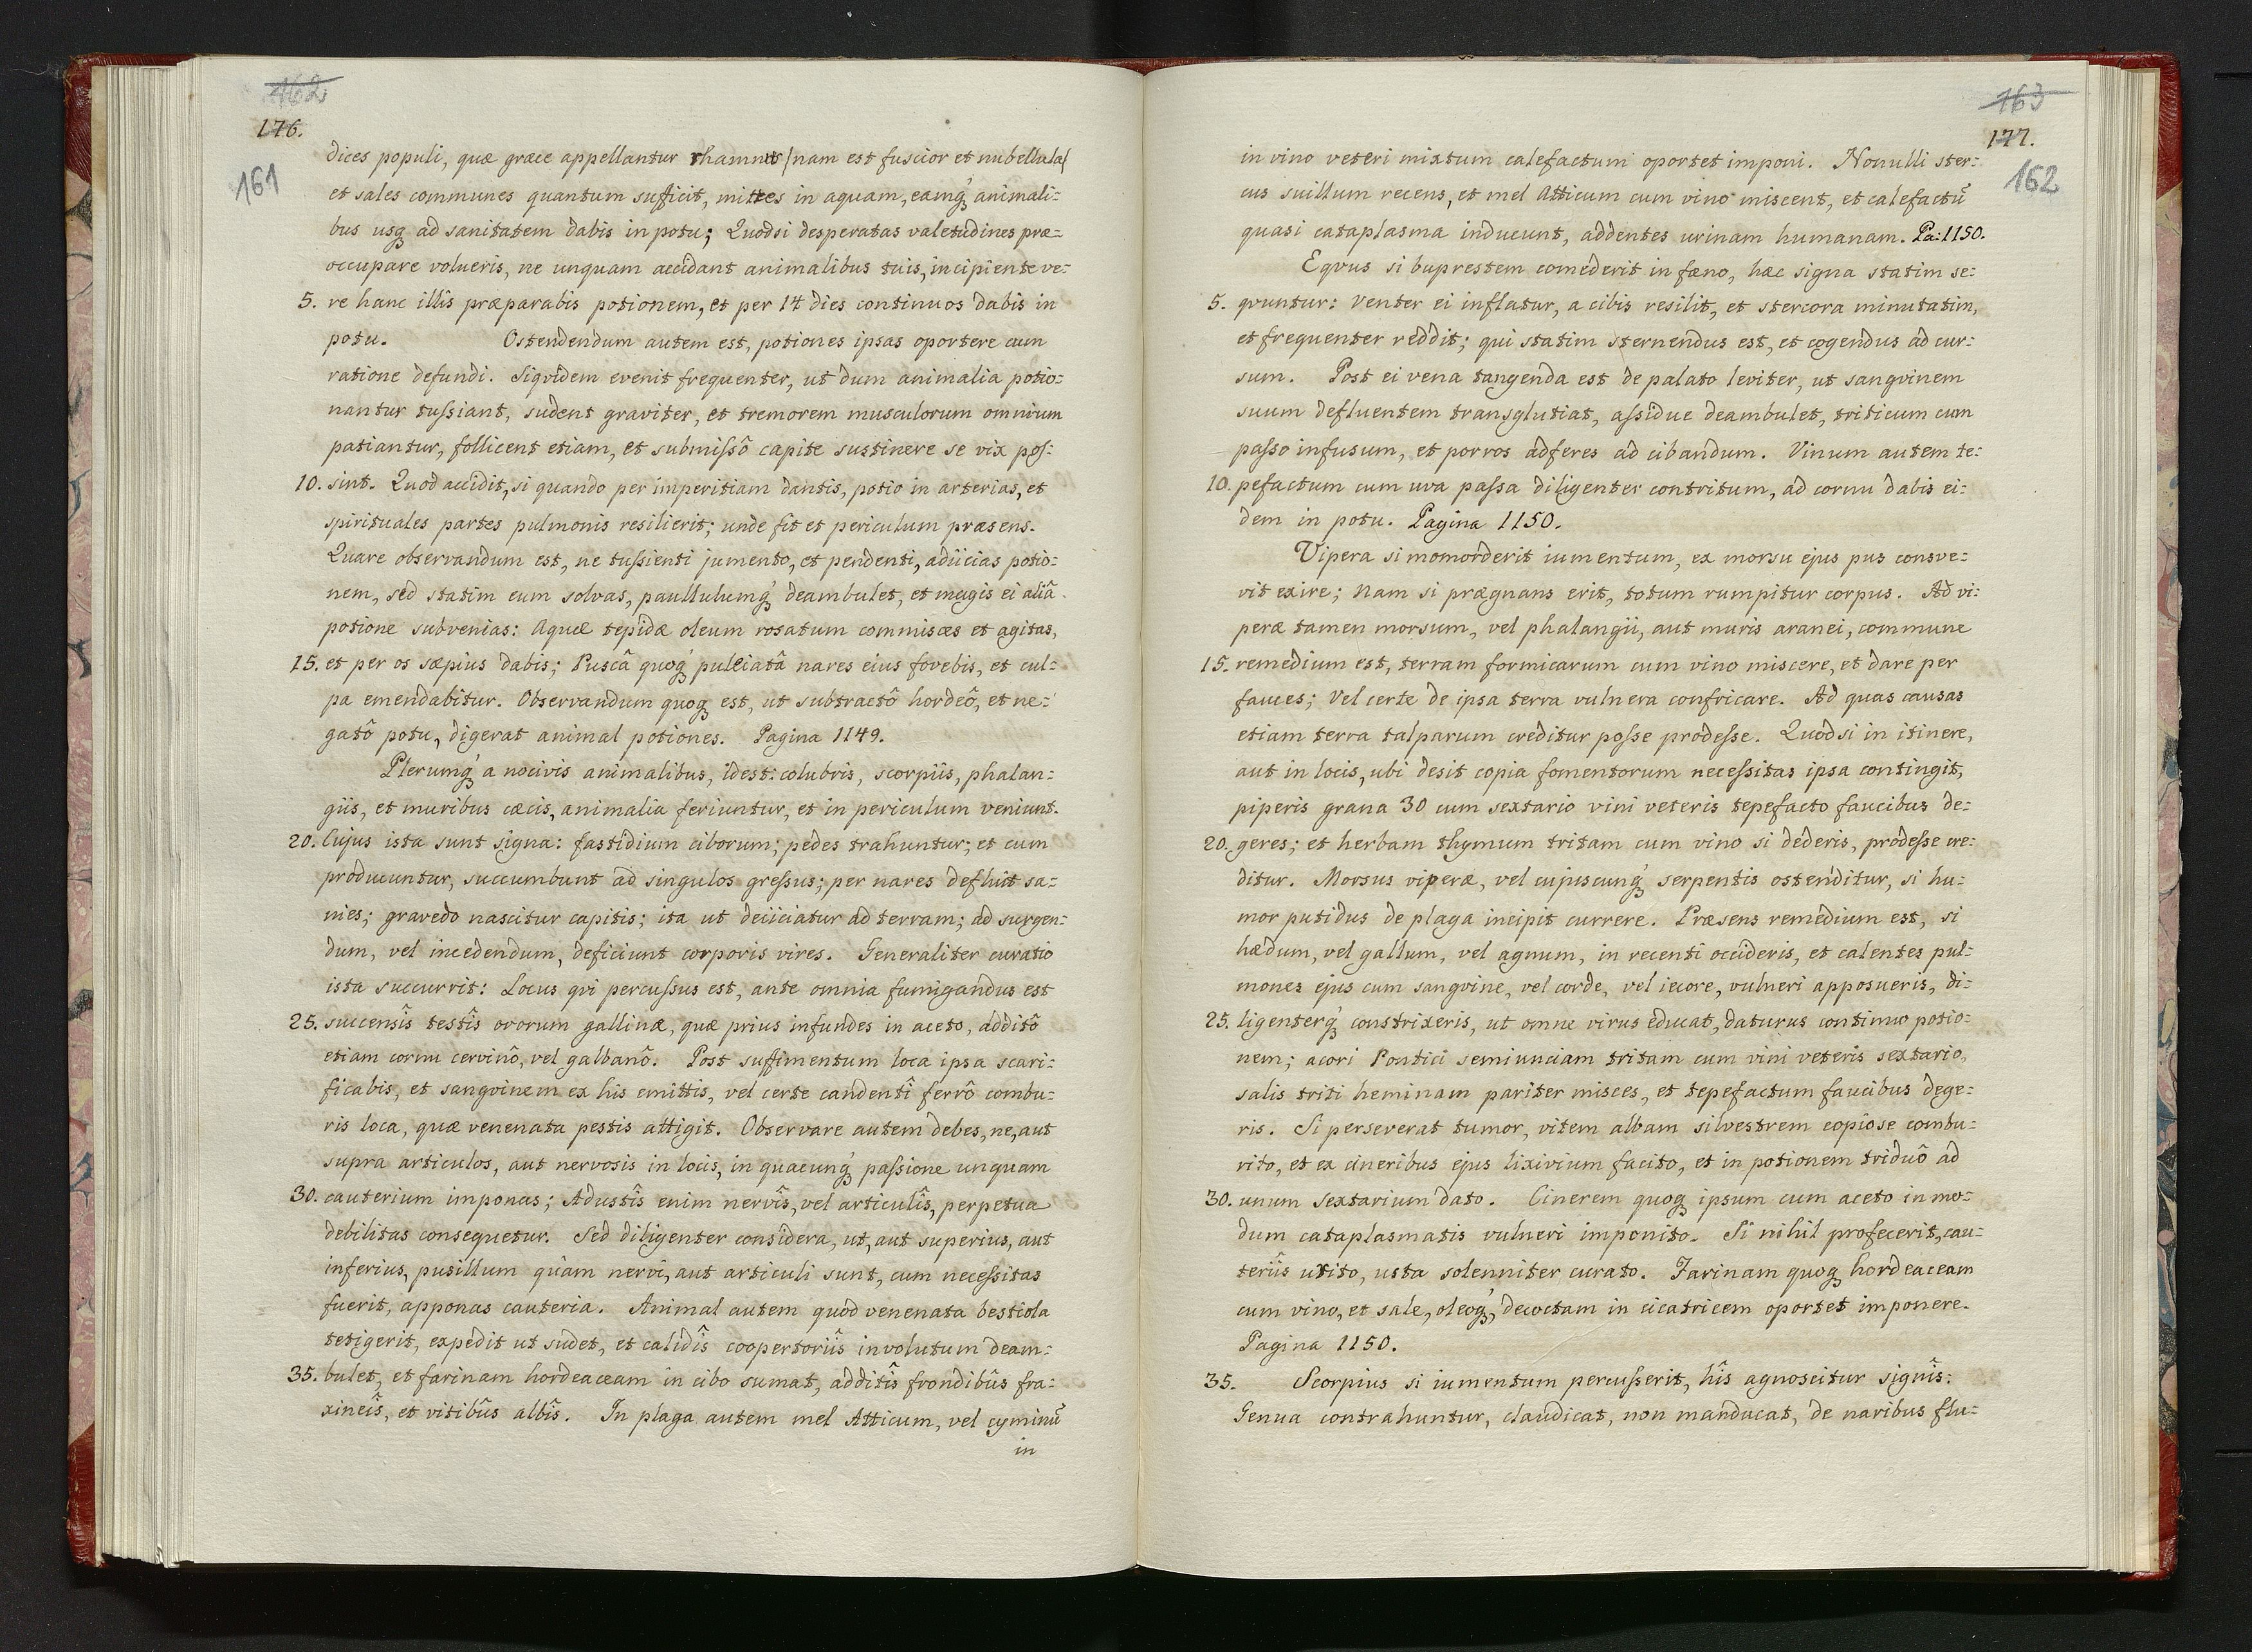 162
176.
161
dices populi, quæ græce appellantur rhamnus (nam est fuscior et nubellula)
et sales communes quantum sufficit, mittes in aquam, eamq́ꝫ animali=
bus usqꝫ ad sanitatem dabis in potu; Quodsi desperatas valetudines præ=
occupare volueris, ne unquam accidant animalibus tuis, incipiente ve=
5. re hanc illis præparabis potionem, et per 14 dies continuos dabis in
potu. Ostendendum autem est, potiones ipsas oportere cum
ratione defundi. Siqvidem evenit frequenter, ut dum animalia potio=
nantur tuſsiant, sudent graviter, et tremorem musculorum omnium
patiantur, follicent etiam, et submiſsô capite sustinere se vix poſ=
10. sint. Quod accidit, si quando per imperitiam dantis, potio in arterias, et
spirituales partes pulmonis resilierit; unde fit et periculum præsens.
Quare observandum est, ne tuſsienti jumento, et pendenti, adiicias potio=
nem, sed statim eum solvas, paullulumq́ꝫ deambulet, et magis ei aliâ
potione subvenias: Aquæ tepidæ oleum rosatum commisces et agitas,
15. et per os sæpius dabis; Puscâ quoq́ꝫ puleiatâ nares eius fovebis, et cul=
pa emendabitur. Observandum quoqꝫ est, ut subtractô hordeô, et ne=
gatô potu, digerat animal potiones. Pagina 1149.
Plerumq́ꝫ a nocivis animalibus, idest: colubris, scorpiis, phalan=
giis, et muribus cæcis, animalia feriuntur, et in periculum veniunt.
20. Cujus ista sunt signa: fastidium ciborum; pedes trahuntur; et cum
producuntur, succumbunt ad singulos greſsus; per nares defluit sa=
nies; gravedo nascitur capitis; ita ut deiiciatur ad terram; ad surgen=
dum, vel incedendum, deficiunt corporis vires. Generaliter curatio
ista succurrit: Locus qvi percuſsus est, ante omnia fumigandus est
25. succensîs testîs ovorum gallinæ, quæ prius infundes in aceto, additô
etiam cornu cervinô, vel galbanô. Post suffimentum loca ipsa scari=
ficabis, et sangvinem ex his emittis, vel certe candentî ferrô combu=
ris loca, quæ venenata pestis attigit. Observare autem debes, ne, aut
supra articulos, aut nervosis in locis, in quacunq́ꝫ paſsione unquam
30. cauterium imponas; Adustîs enim nervîs, vel articulîs, perpetua
debilitas consequetur. Sed diligenter considera, ut, aut superius, aut
inferius, pusillum quàm nervi, aut articuli sunt, cum neceſsitas
fuerit, apponas cauteria. Animal autem quòd venenata bestiola
tetigerit, expedit ut sudet, et calidîs coopertoriîs involutum deam=
35. bulet, et farinam hordeaceam in cibo sumat, additîs frondibûs fra=
xineîs, et vitibûs albîs. In plaga autem mel Atticum, vel cyminũ
in
163
177.
162
in vino veteri mixtum calefactum oportet imponi. Nonulli ster=
cus suillum recens, et mel Atticum cum vino miscent, et calefactũ
quasi cataplasma inducunt, addentes urinam humanam. Pa: 1150.
Eqvus si buprestem comederit in fæno, hæc signa statim se=
5. qvuntur: Venter ei inflatur, a cibis resilit, et stercora minutatim,
et frequenter reddit; qui statim sternendus est, et cogendus ad cur=
sum. Post ei vena tangenda est de palato leviter, ut sangvinem
suum defluentem transglutiat, aſsidue deambulet, triticum cum
paſso infusum, et porros adferes ad cibandum. Vinum autem te=
10. pefactum cum uva paſsa diligenter contritum, ad cornu dabis ei=
dem in potu. Pagina 1150.
Vipera si momorderit iumentum, ex morsu ejus pus consve=
vit exire; Nam si prægnans erit, totum rumpitur corpus. Ad vi=
peræ tamen morsum, vel phalangii, aut muris aranei, commune
15. remedium est, terram formicarum cum vino miscere, et dare per
fauces; Vel certe de ipsa terra vulnera confricare. Ad quas causas
etiam terra talparum creditur poſse prodeſse. Quodsi in itinere,
aut in locis, ubi desit copia fomentorum neceſsitas ipsa contingit,
piperis grana 30 cum sextario vini veteris tepefacto faucibus de=
20. geres; et herbam thymum tritam cum vino si dederis, prodeſse cre=
ditur. Morsus viperæ, vel cujuscunq́ꝫ serpentis ostenditur, si hu=
mor putidus de plaga incipit currere. Præsens remedium est, si
hædum, vel gallum, vel agnum, in recenti occideris, et calentes pul=
mones ejus cum sangvine, vel corde, vel iecore, vulneri apposueris, di=
25. ligenterq́ꝫ constrixeris, ut omne virus educat, daturus continuo potio=
nem; acori Pontici semiunciam tritam cum vini veteris sextario,
salis triti heminam pariter misces, et tepefactum faucibus dege=
ris. Si perseverat tumor, vitem albam silvestrem copiose combu=
rito, et ex cineribus ejus lixivium facito, et in potionem triduô ad
30. unum sextarium dato. Cinerem quoqꝫ ipsum cum aceto in mo=
dum cataplasmatis vulneri imponito. Si nihil profecerit, cau=
teriîs utito, usta solenniter curato. Farinam quoqꝫ hordeaceam
cum vino, et sale, oleoq́ꝫ, decoctam in cicatricem oportet imponere.
Pagina 1150.
35. Scorpius si iumentum percuſserit, hîs agnoscitur signîs:
Genua contrahuntur, claudicat, non manducat, de naribus flu=